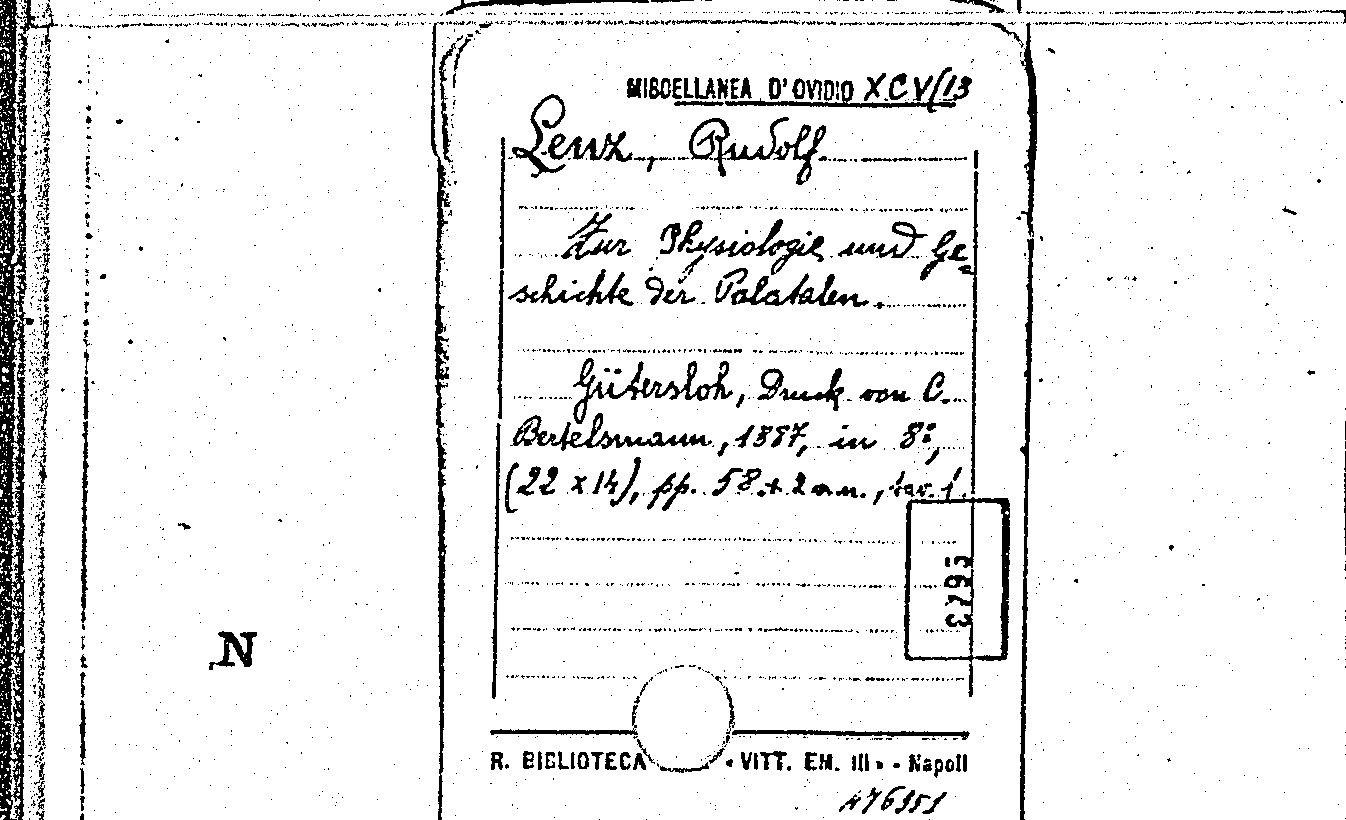 MISCELLANEA D'OVIDIO XCV/13
Lenz, Rudolf.
Zur Physiologie und Ge-
schichte der Palatalen.
Gütersloh, Druck von C.
Bertelsmann, 1887, in 8°,
(22 x 14), pp. 58 + 2 n.n., tav. 1.
N
R. BIBLIOTECA « VITT. EM. III » - Napoli